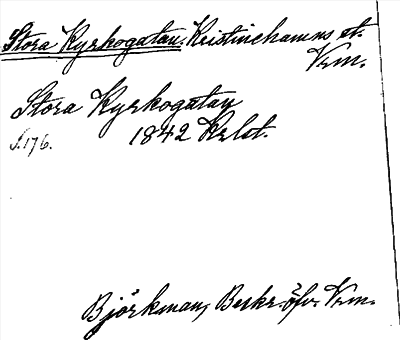 Stora Kyrkogatan. Kristinehamns st.
Vrm.
Stora Kyrkogatan
S. 176. 1842 Krlst.
Björkman, Beskr. öfv. Vrm.